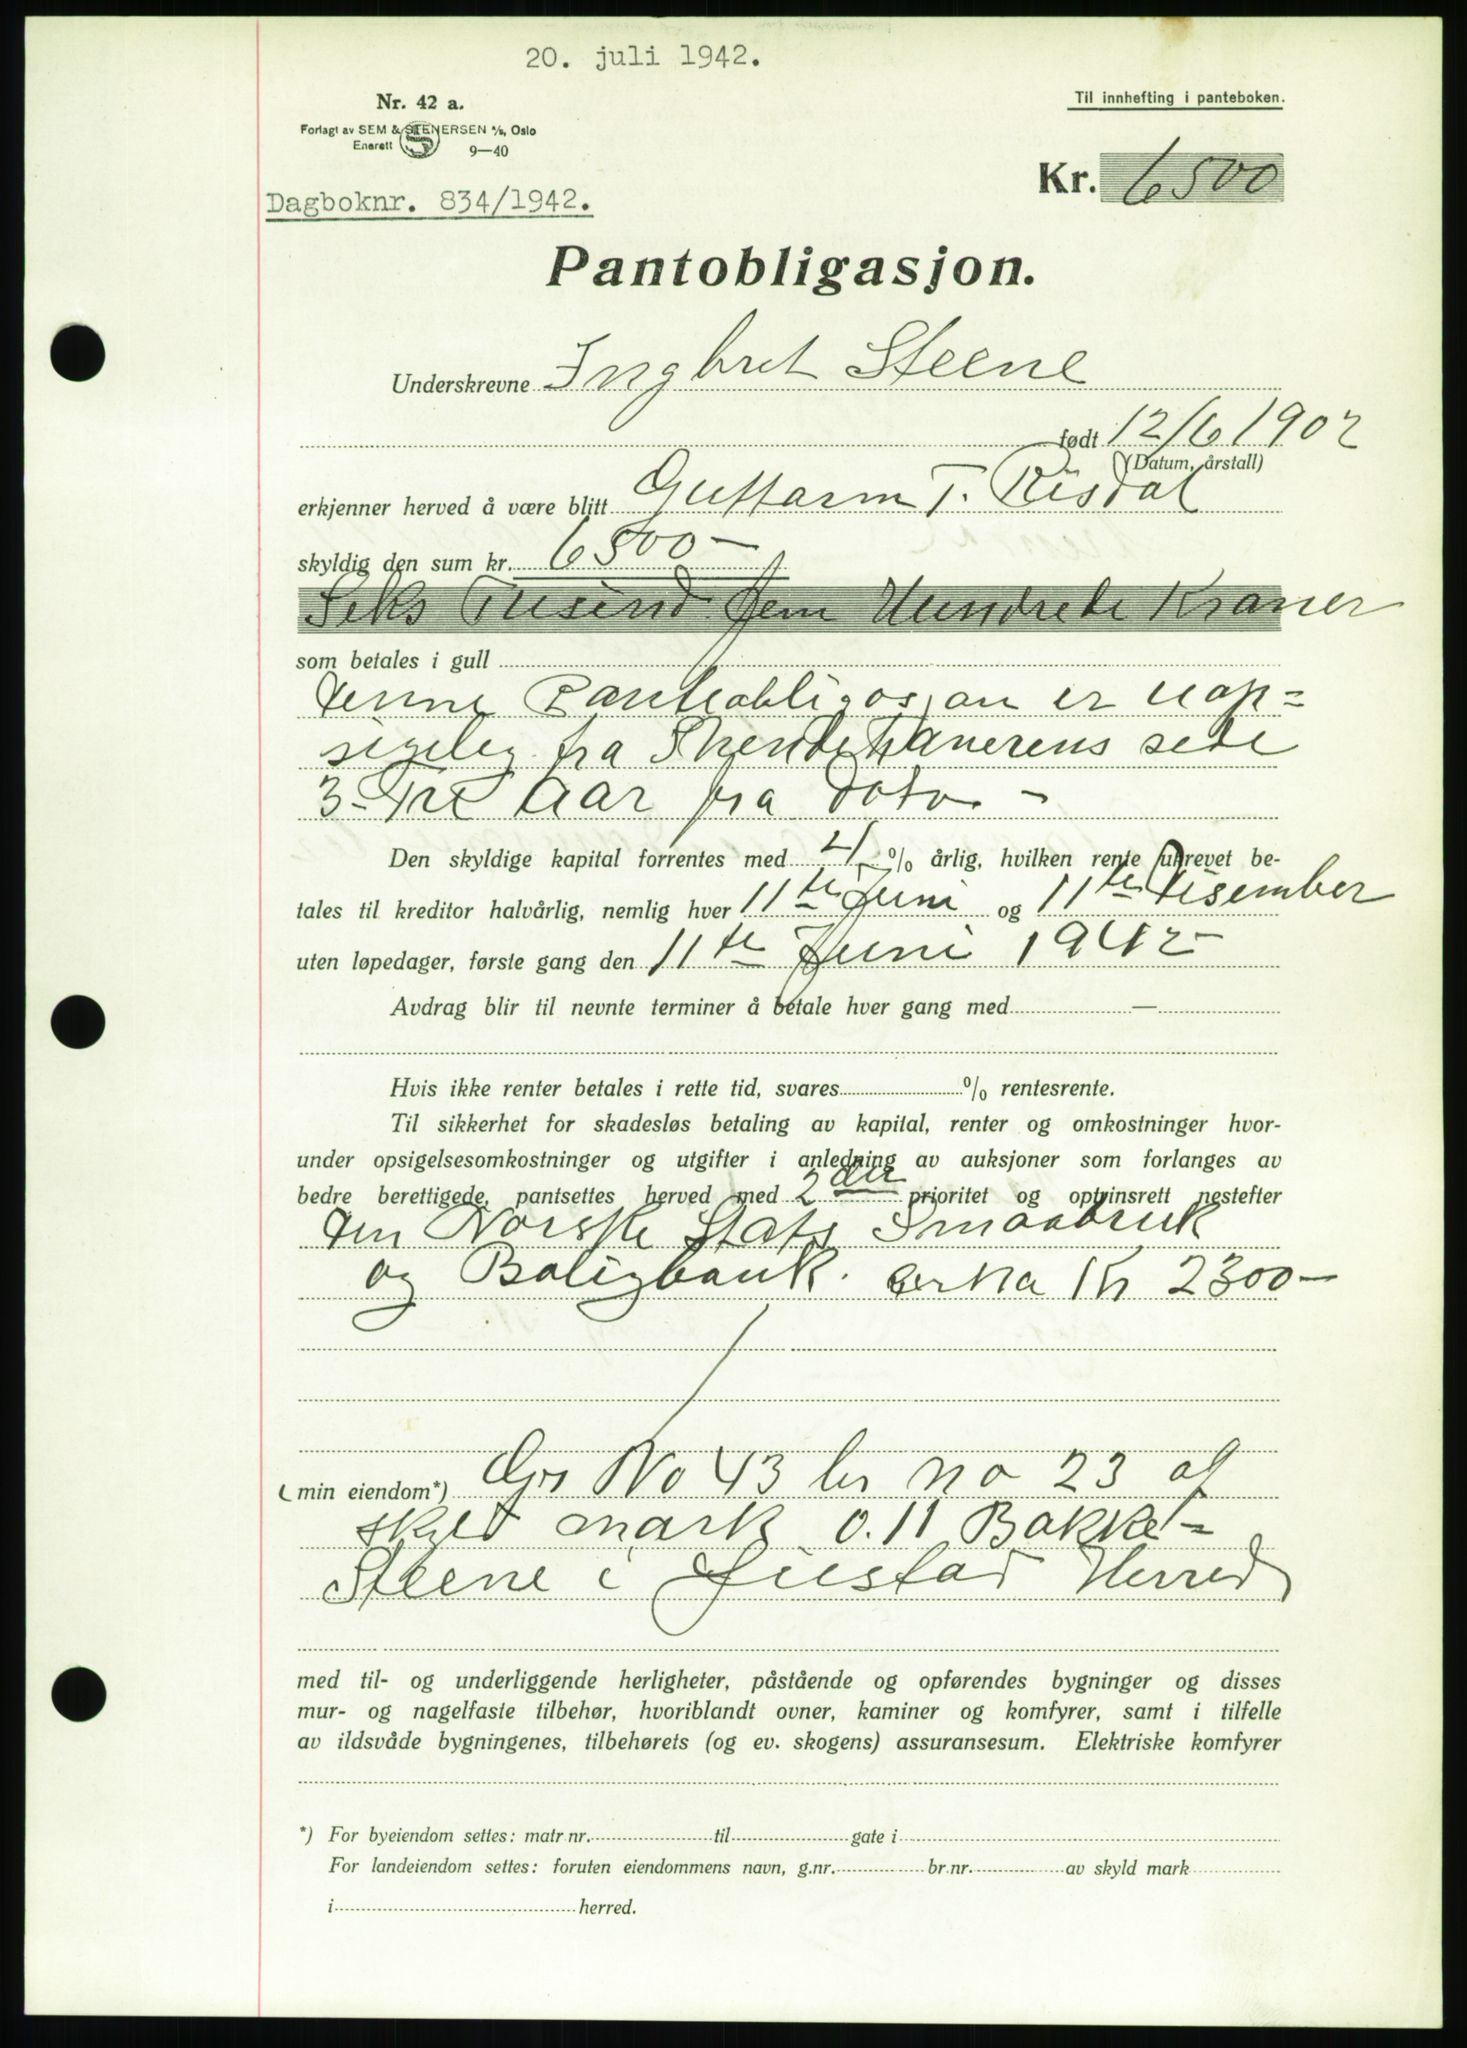 20. juli 1942.
Nr. 42 a.
Til innhefting i panteboken.
Forlagt av SEM & STENERSEN A/S, Oslo
Enerett
9—40
Kr. 6500
Dagboknr. 834/1942.
Pantobligasjon.
Underskrevne Ingbret Steene
født 12/6 1902
(Datum, årstall)
erkjenner herved å være blitt Guttorm T. Risdal
skyldig den sum kr. 6500 —
Seks Tusind fem Hundrede Kroner
som betales i gull
denne Panteobligasjon er uop=
sigelig fra side
3 - Tre Aar fra Dato. -
Den skyldige kapital forrentes med 4 % årlig, hvilken rente ukrevet be-
tales til kreditor halvårlig, nemlig hver 11te Juni og 11te Disember
uten løpedager, første gang den 11te Juni 1942 -
Avdrag blir til nevnte terminer å betale hver gang med —
Hvis ikke renter betales i rette tid, svares % rentesrente.
Til sikkerhet for skadesløs betaling av kapital, renter og omkostninger hvor-
under opsigelsesomkostninger og utgifter i anledning av auksjoner som forlanges av
bedre berettigede, pantsettes herved med 2den prioritet og opttrinsrett nestefter
den Norske Stats Smaabruk
og Boligbank. serka Kr 2300 —
min eiendom*) Grs No 43 br no 23 af
skyld mark 0.11 Bakke=
Steene i Herred
med til- og underliggende herligheter, påstående og opførendes bygninger og disses
mur- og nagelfaste tilbehør, hvoriblandt ovner, kaminer og komfyrer, samt i tilfelle
av ildsvåde bygningenes, tilbehørets (og ev. skogens) assuransesum. Elektriske komfyrer
*) For byeiendom settes: matr nr. til gate i
For landeiendom settes: foruten eiendommens navn, g.nr. br.nr. av skyld mark
i herred.